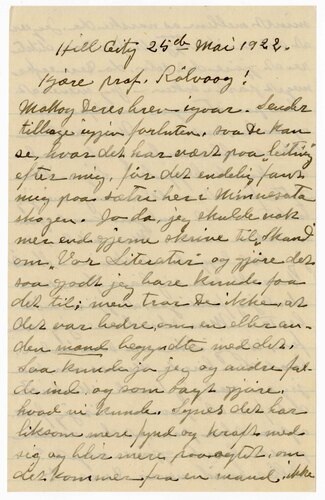 Hill City 25de Mai 1922.
Kjære prof. Rölvaag!
Motlog Deres brev igaar. Sender
tilbage igjen forluten, saa De kan
se, hvor det har vært paa "leiting"
efter mig, før det endelig fant
mig paa sætri her i Minnesota
skogen. Jo da, jeg skulde nok
mer end gjerne skrive til "Skand"
om "Vor Literatur" og gjøre det
saa godt jeg bare kunde faa
det til; men tror De ikke, at
det var bedre, om en eller an-
den mand begyndte med det.
Saa kunde jo jeg og andre fal-
de ind og som sagt gjøre,
hvad vi kunde. Synes det har
liksom mere fynd og kraft med
sig og blir mere paaagtet, om
det kommer fra en mand, ikke